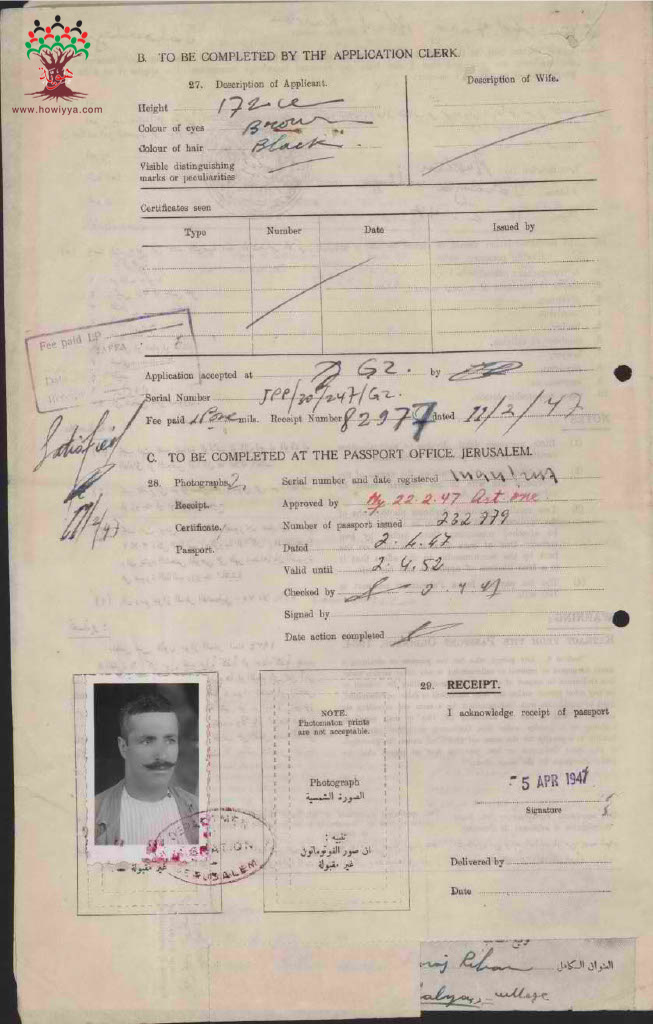 www.howiyya.com
B. TO BE COMPLETED BY THE APPLICATION CLERK.
27. Description of Applicant.
Description of Wife.
Height 172 ce
Colour of eyes Brown
Colour of hair Black
Visible distinguishing
marks or peculiarities
Certificates seen
Type Number Date Issued by
Fee paid LP.
Application accepted at GZ. by
Serial Number /247/GZ.
Fee paid None mils. Receipt Number 82977 dated 22/2/47
Satisfied
C. TO BE COMPLETED AT THE PASSPORT OFFICE, JERUSALEM.
28. Photographs 2.
Serial number and date registered
Receipt.
Approved by 22.2.47
Certificate.
Number of passport issued 232779
Passport.
Dated 2.4.47
Valid until 2.4.52
Checked by
Signed by
Date action completed
29. RECEIPT.
I acknowledge receipt of passport
- 5 APR 1947
Signature
Delivered by
Date
NOTE.
Photomaton prints
are not acceptable.
Photograph
الصورة الشمسية
تنبيه :
ان صور الفوتوماتون
غير مقبولة
غير مقبولة
JERUSALEM
العنوان الكامل
village